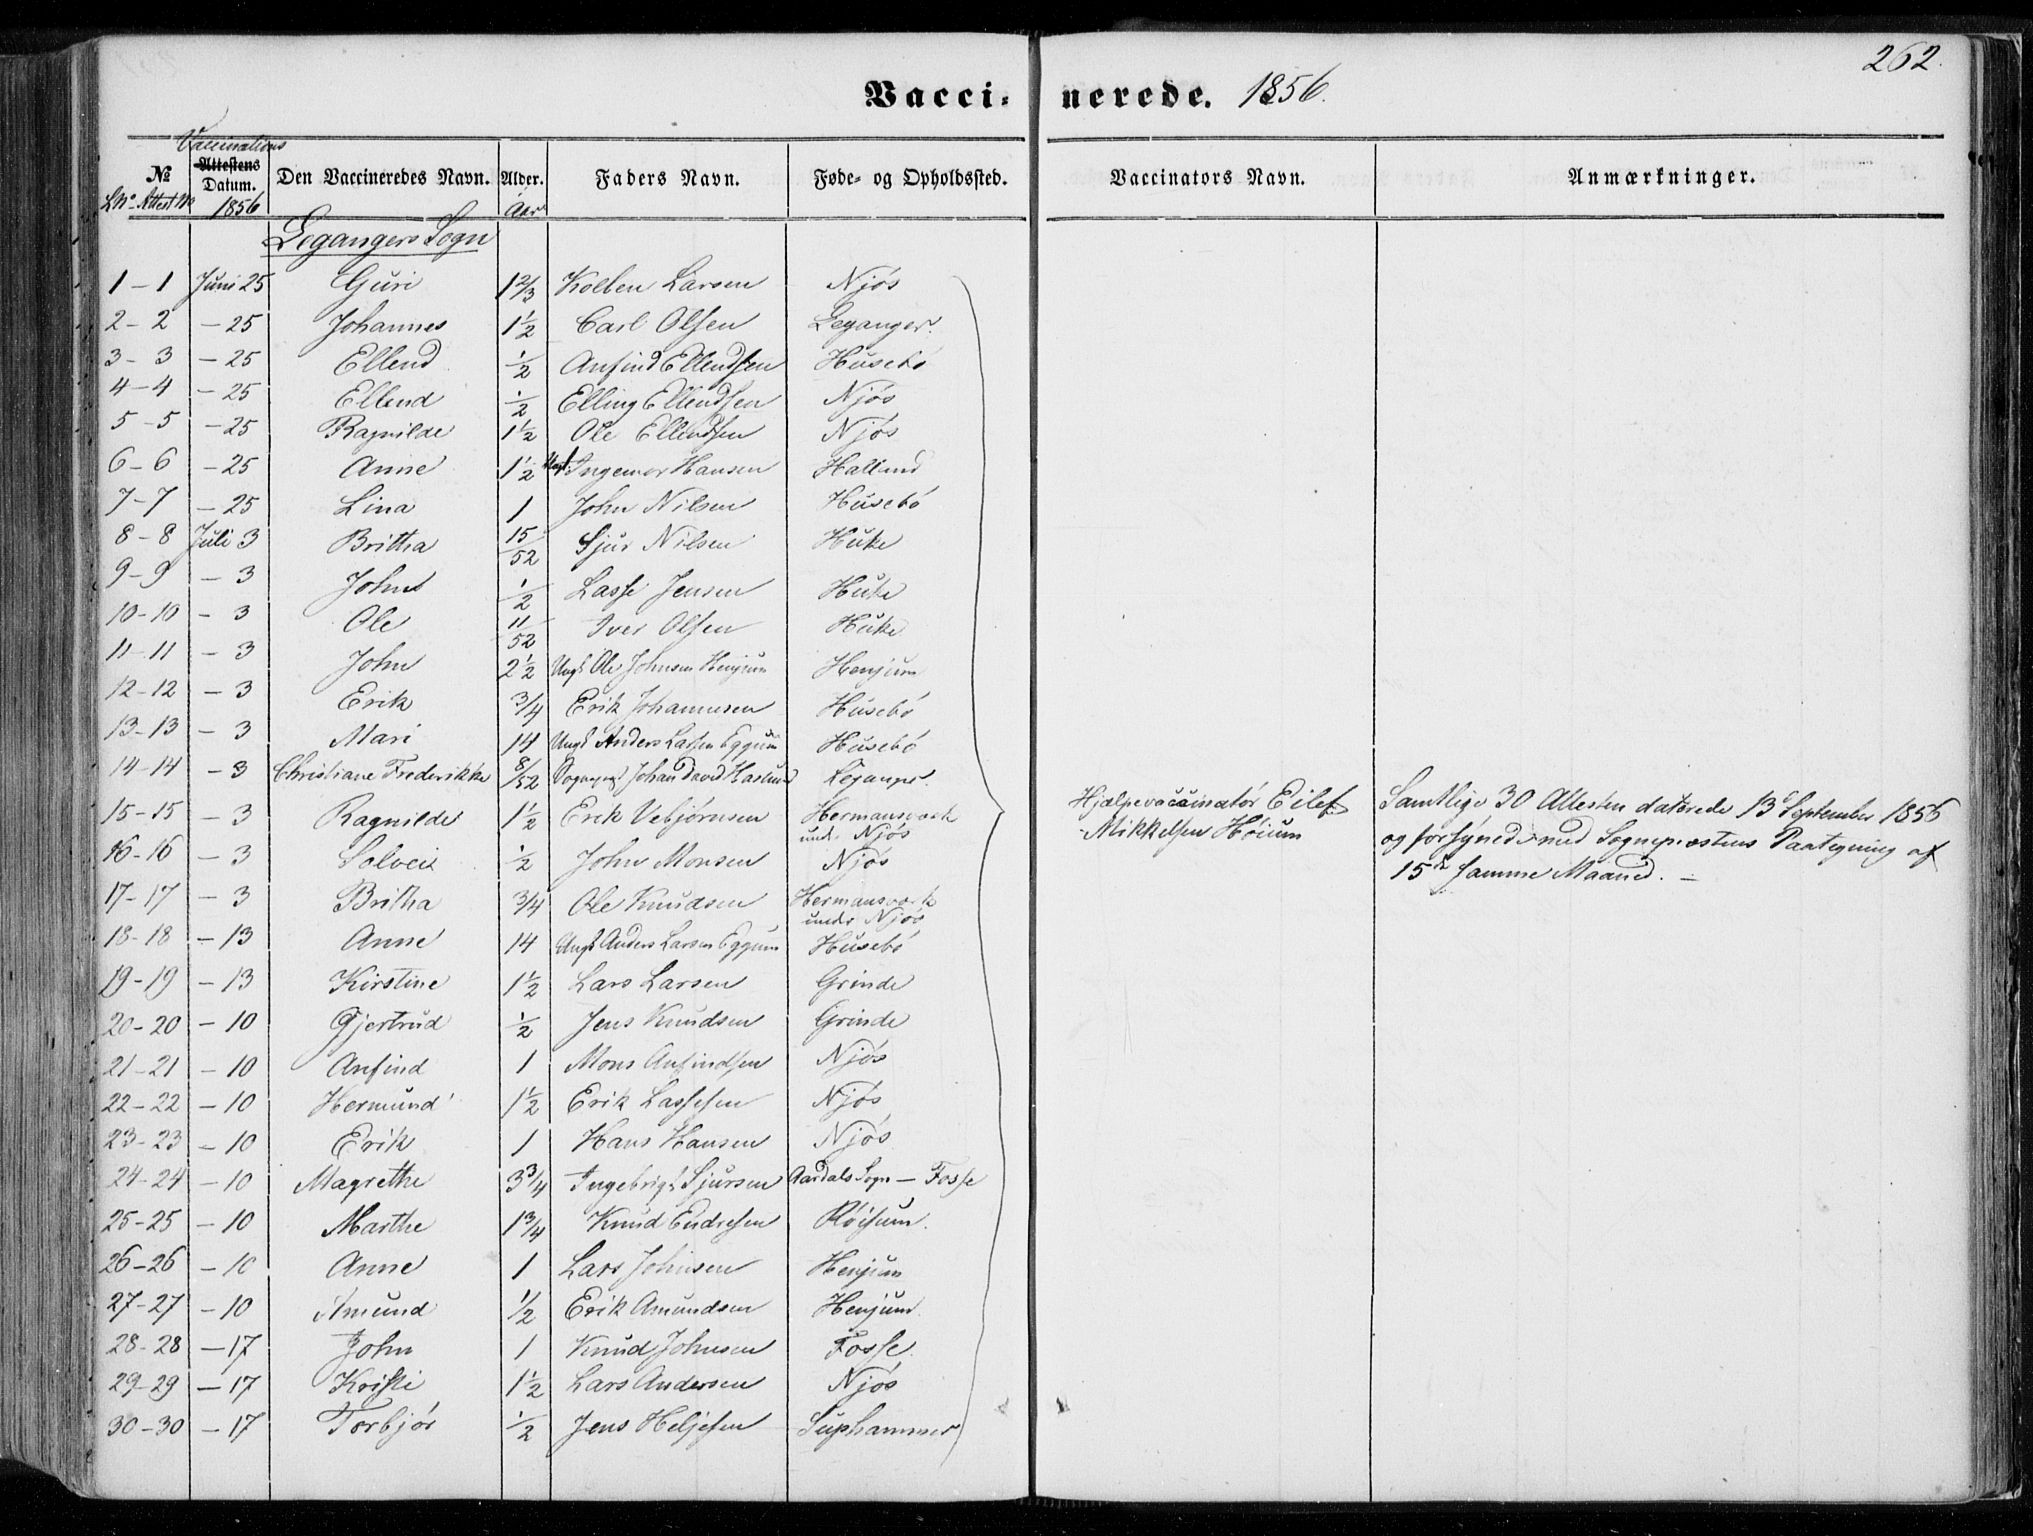 262.
Vaccinerede. 1856.
Vaccinations
№ Attestens Datum. Den Vaccineredes Navn. Alder. Faders Navn. Føde- og Opholdssted. Vaccinators Navn. Anmærkninger.
LNo Attest No 1856 Aar
Legangers Sogn
1-1 Juni 25 Guri 1 2/3 Kolben Larsen Njøs
2-2 - 25 Johannes 1 1/2 Carl Olsen Leganger.
3-3 - 25 Ellend 1/2 Anfind Ellendsen Husebø
4-4 - 25 Ellend 1/2 Elling Ellendsen Njøs
5-5 - 25 Ragnilde 1 1/2 Ole Ellendsen Njøs
6-6 - 25 Anne 1 1/2 Ingemor Hansen Halland
7-7 - 25 Lina 1 John Nilsen Husebø
8-8 Juli 3 Brittha 15/52 Sjur Nilsen Huke
9-9 - 3 John 1/2 Lasse Jensen Huke
10-10 - 3 Ole 11/52 Iver Olsen Huke
11-11 - 3 John 2 1/2 Ungk Ole Johnsen Henjum Henjum
12-12 - 3 Erik 3/4 Erik Johannesen Husebø
13-13 - 3 Mari 14 Ungk Anders Larsen Eggum Husebø
14-14 - 3 Christiane Frederikke 8/52 Sognepræst Johan David Haslund Leganger.
15-15 - 3 Ragnilde 1 1/2 Erik Vebjørnsen Hermansværk
und. Njøs
Hjælpevaccinatør Eilef
Mikkelsen Høium
Samtlige 30 Attester daterede 13de September 1856
og forsynede med Sognepræstens Paategning af
15de samme Maaned. -
16-16 - 3 Solvei 1/2 John Monsen Njøs
17-17 - 3 Britha 3/4 Ole Knudsen Hermansværk
undr Njøs
18-18 - 13 Anne 14 Ungk Anders Larsen Eggum Husebø
19-19 - 13 Kirstine 1 1/2 Lars Larsen Grinde
20-20 - 10 Gjertrud 1/2 Jens Knudsen Grinde
21-21 - 10 Anfind 1 Mons Anfindsen Njøs
22-22 - 10 Hermund 1 1/2 Erik Lassesen Njøs
23-23 - 10 Erik 1 Hans Hansen Njøs
24-24 - 10 Magrethe 3 3/4 Ingebrigt Sjursen Aardals Sogn - Fosse
25-25 - 10 Marthe 1 3/4 Knud Endresen Røisum.
26-26 - 10 Anne 1 Lars Johnsen Henjum
27-27 - 10 Amund 1/2 Erik Amundsen Henjum.
28-28 - 17 John 1 Knud Johnsen Fosse.
29-29 - 17 Kristi 1 1/2 Lars Andersen Njøs
30-30 - 17 Torbjør 1/2 Jens Heljesen Suphammer